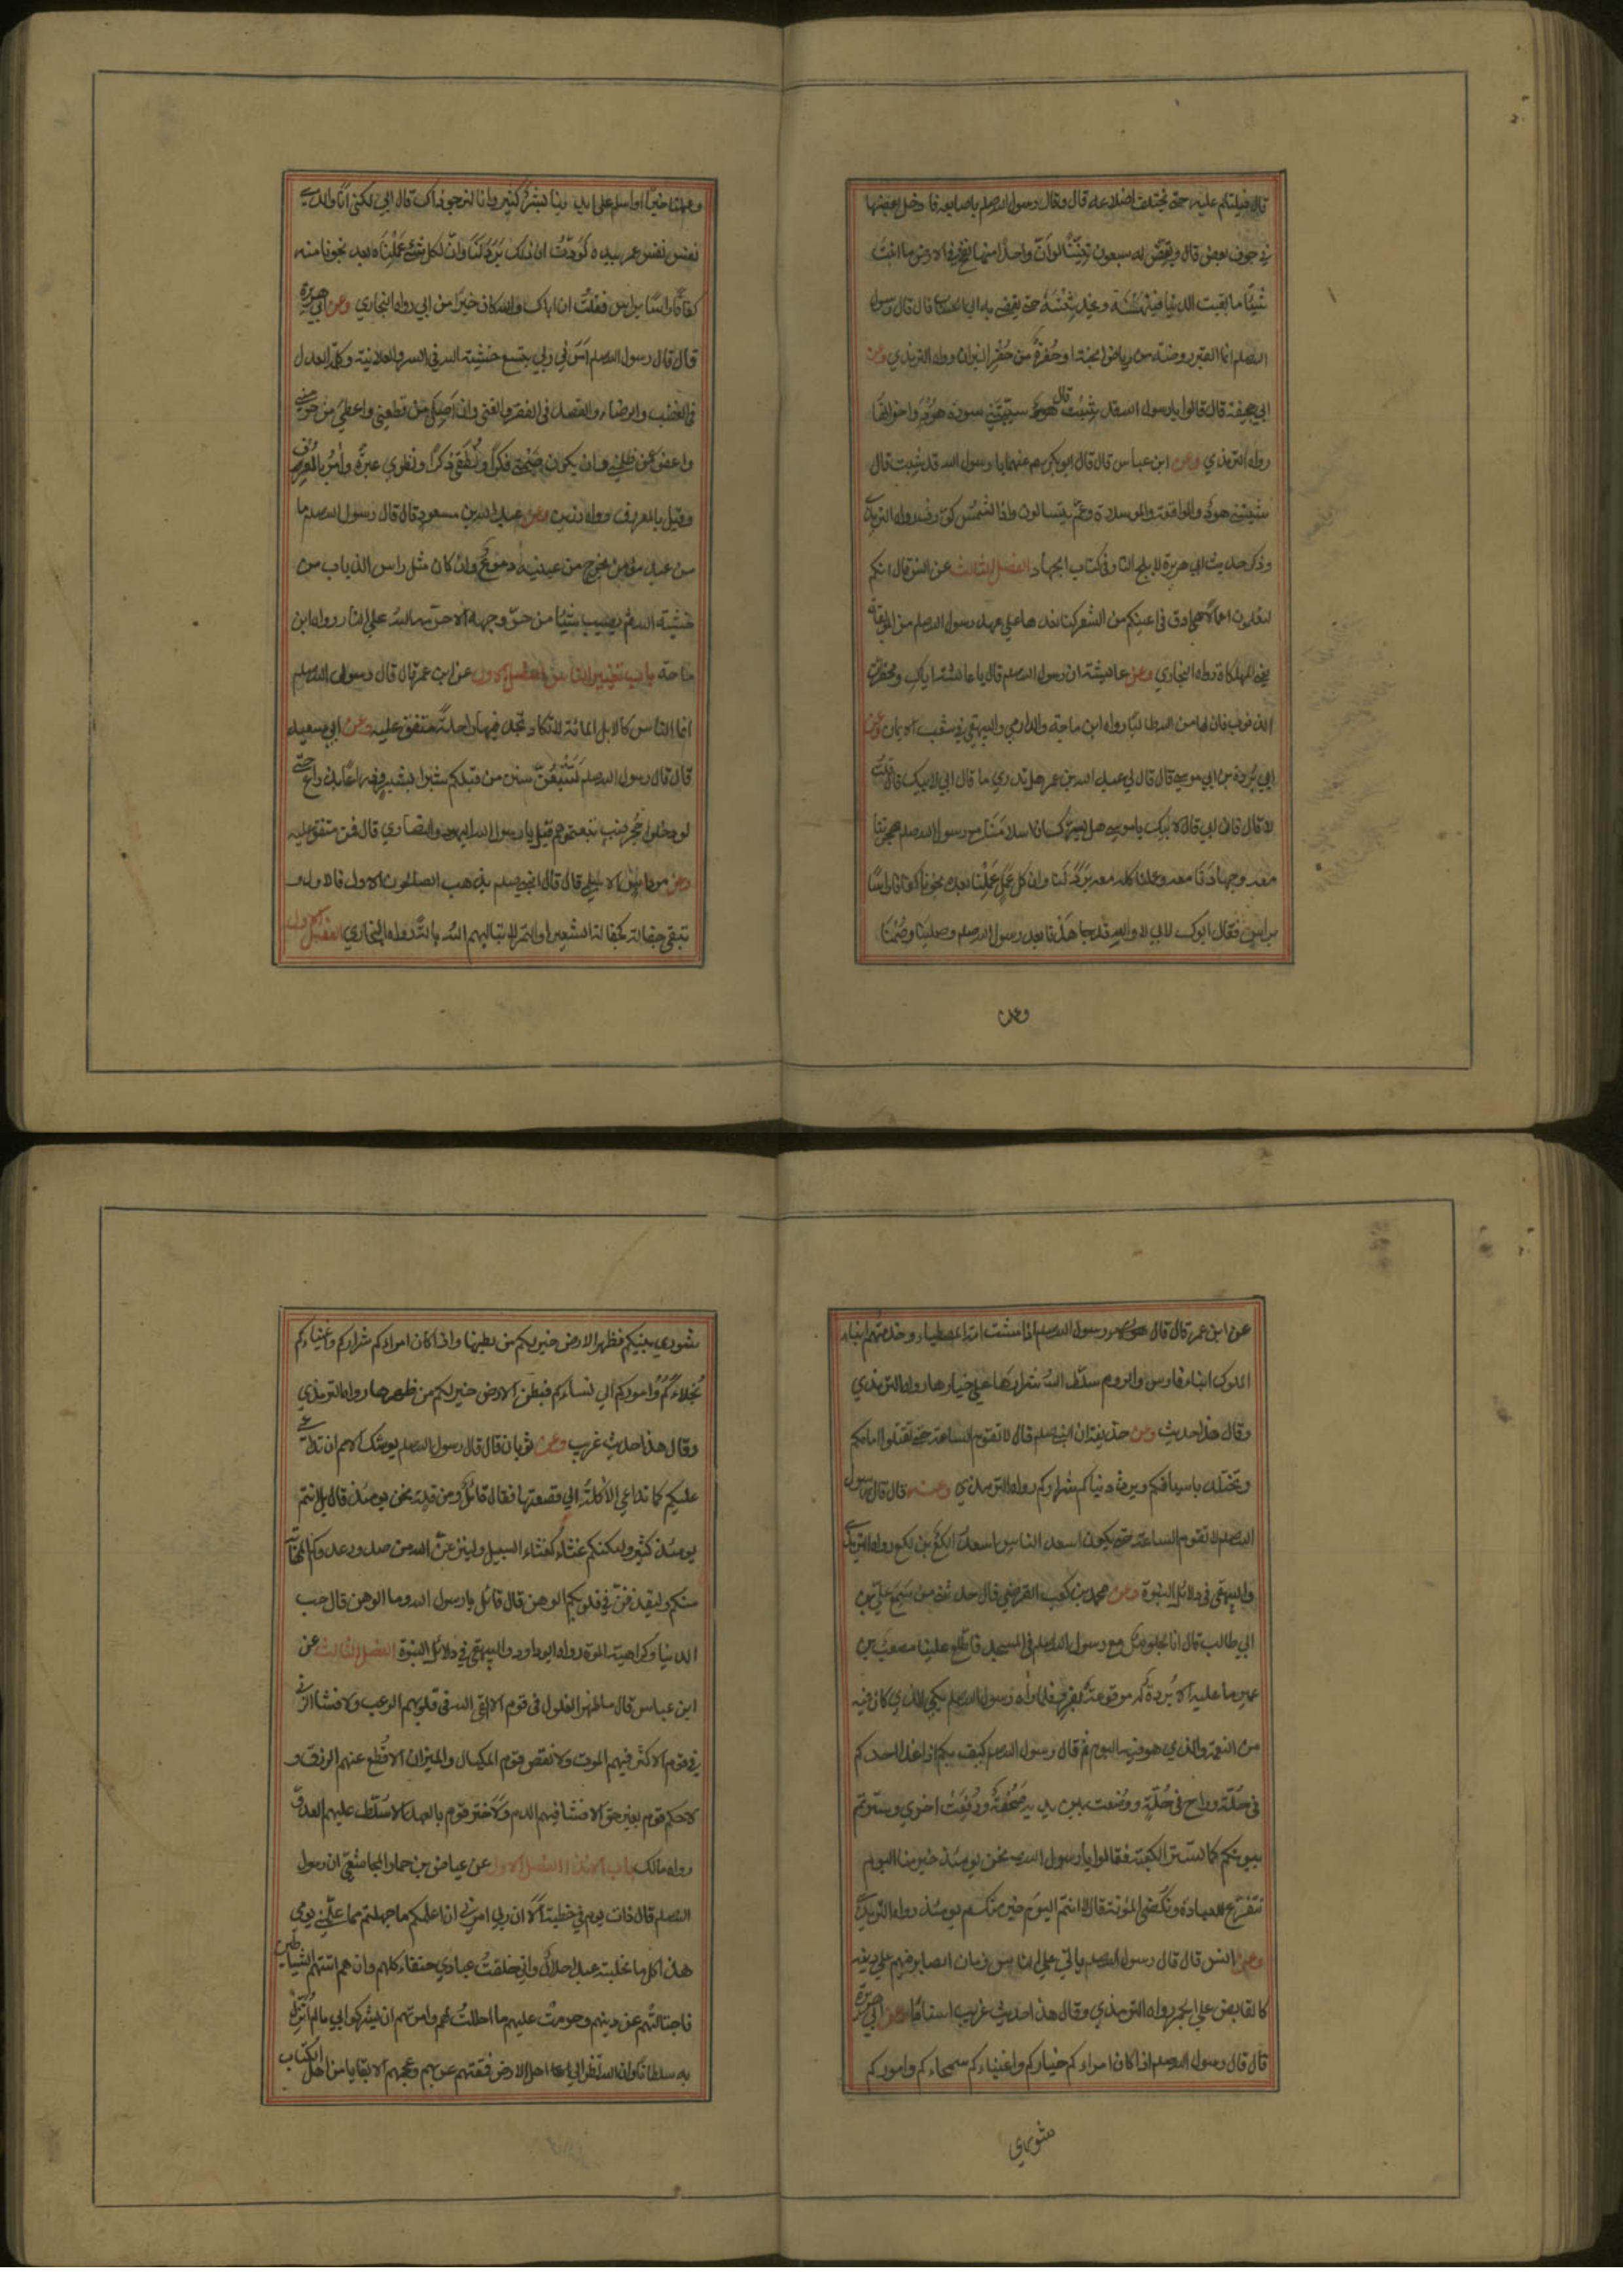 قال فيلتام عليه حتى تختلف اضلاعه قال وقال رسول الله صلعم باصابعه فادخل بعضها
في جوف بعض قال ويقيض له سبعون تنينا لو ان واحدا منها نفخ في الارض ما انبتت
شيئا ما بقيت الدنيا فينهسنه ويخدشنه حتى يفضي به الى الحساب قال قال رسول
الله صلعم انما القبر روضة من رياض الجنة او حفرة من حفر النيران رواه الترمذي وعن
ابي جحيفة قال قالوا يا رسول الله قد شبت قال شيبتني سورة هود واخواتها
رواه الترمذي وعن ابن عباس قال قال ابو بكر يا رسول الله قد شبت قال
شيبتني هود والواقعة والمرسلات وعم يتسالون واذا الشمس كورت رواه الترمذي
وذكر حديث ابي هريرة لا يلج النار في كتاب الجهاد الفصل الثالث عن انس قال انكم
لتعلمون اعمالا هي ادق في اعينكم من الشعر كنا نعدها على عهد رسول الله صلعم من الموبقات
يعني المهلكات رواه البخاري وعن عائشة ان رسول الله صلعم قال يا عائشة اياك ومحقرات
الذنوب فان لها من الله طالبا رواه ابن ماجة والدارمي والبيهقي في شعب الايمان وعن
ابي بردة بن ابي موسى قال قال لي عبد الله بن عمر هل تدري ما قال ابي لابيك قال قلت
لا قال فان ابي قال لابيك يا موسى هل يسرك ان اسلامنا مع رسول الله صلعم وهجرتنا
معه وجهادنا معه وعملنا كله معه برد لنا وان كل عمل عملنا بعده نجونا كفافا راسا
براس فقال ابوك لابي لا والله قد جاهدنا بعد رسول الله صلعم وصلينا وصمنا
وعملنا
وعملنا خيرا واسلم على ايدينا بشر كثير وانا لنرجو ذاك قال ابي لكني انا والذي
نفس عمر بيده لوددت ان ذلك برد لنا وان كل شئ عملناه بعده نجونا منه
كفافا راسا براس فقلت ان اباك والله كان خيرا من ابي رواه البخاري وعن ابي هريرة
قال قال رسول الله صلعم امرني ربي بتسع خشية الله في السر والعلانية وكلمة العدل
في الغضب والرضاء والقصد في الفقر والغنى وان اصل من قطعني واعطي من حرمني
واعفو عن ظلمني وان يكون صمتي فكرا ونطقي ذكرا ونظري عبرة وآمر بالعرف
وقيل بالمعروف رواه رزين وعن عبد الله بن مسعود قال قال رسول الله صلعم ما
من عبد مؤمن يخرج من عينيه دموع وان كان مثل راس الذباب من
خشية الله ثم يصيب شيئا من حر وجهه الا حرمه الله على النار رواه ابن
ماجة باب تغيير الناس الفصل الاول عن ابن عمر قال قال رسول الله صلعم
انما الناس كالابل المائة لا تكاد تجد فيها راحلة متفق عليه وعن ابي سعيد
قال قال رسول الله صلعم لتتبعن سنن من قبلكم شبرا بشبر وذراعا بذراع حتى
لو دخلوا جحر ضب تبعتموهم قيل يا رسول الله اليهود والنصارى قال فمن متفق عليه
وعن مرداس الاسلمي قال قال النبي صلعم يذهب الصالحون الاول فالاول و
تبقى حفالة كحفالة الشعير او التمر لا يباليهم الله بالة رواه البخاري الفصل الاول
عن ابن عمر قال قال رسول الله صلعم اذا مشت امتي المطيطاء وخدمتهم ابناء
الملوك ابناء فارس والروم سلط الله شرارها على خيارها رواه الترمذي
وقال هذا حديث وعن حذيفة ان النبي صلعم قال لا تقوم الساعة حتى تقتلوا امامكم
وتجتلدوا باسيافكم ويرث دنياكم شراركم رواه الترمذي وعنه قال قال رسول
الله صلعم لا تقوم الساعة حتى يكون اسعد الناس لكع بن لكع رواه الترمذي
والبيهقي في دلائل النبوة وعن محمد بن كعب القرظي قال حدثني من سمع علي بن
ابي طالب قال انا لجلوس مع رسول الله صلعم في المسجد فاطلع علينا مصعب بن
عمير ما عليه الا بردة له مرقوعة بفرو فلما رآه رسول الله صلعم بكى للذي كان فيه
من النعمة والذي هو فيه اليوم ثم قال رسول الله صلعم كيف بكم اذا غدا احدكم
في حلة وراح في حلة ووضعت بين يديه صحفة ورفعت اخرى وسترتم
بيوتكم كما تستر الكعبة فقالوا يا رسول الله نحن يومئذ خير منا اليوم
نتفرغ للعبادة ونكفى المؤنة قال لا انتم اليوم خير منكم يومئذ رواه الترمذي
وعن انس قال قال رسول الله صلعم ياتي على الناس زمان الصابر فيهم على دينه
كالقابض على الجمر رواه الترمذي وقال هذا حديث غريب اسنادا وعن ابي هريرة
قال قال رسول الله صلعم اذا كان امراءكم خياركم واغنياءكم سمحاءكم واموركم
شورى
شورى بينكم فظهر الارض خير لكم من بطنها واذا كان امراءكم شراركم واغنياءكم
بخلاءكم واموركم الى نساءكم فبطن الارض خير لكم من ظهرها رواه الترمذي
وقال هذا حديث غريب وعن ثوبان قال قال رسول الله صلعم يوشك الامم ان تداعى
عليكم كما تداعى الاكلة الى قصعتها فقال قائل ومن قلة نحن يومئذ قال بل انتم
يومئذ كثير ولكنكم غثاء كغثاء السيل ولينزعن الله من صدور عدوكم المهابة
منكم وليقذفن في قلوبكم الوهن قال قائل يا رسول الله وما الوهن قال حب
الدنيا وكراهية الموت رواه ابو داود والبيهقي في دلائل النبوة الفصل الثالث عن
ابن عباس قال ما ظهر الغلول في قوم الا القى الله في قلوبهم الرعب ولا فشا الزنى
في قوم الا كثر فيهم الموت ولا نقص قوم المكيال والميزان الا قطع عنهم الرزق و
لا حكم قوم بغير حق الا فشا فيهم الدم ولا ختر قوم بالعهد الا سلط عليهم العدو
رواه مالك باب الانذار الفصل الاول عن عياض بن حمار المجاشعي ان رسول
الله صلعم قال ذات يوم في خطبته الا ان ربي امرني ان اعلمكم ما جهلتم مما علمني يومي
هذا كل ما نحلته عبدا حلال واني خلقت عبادي حنفاء كلهم وانهم اتتهم الشياطين
فاجتالتهم عن دينهم وحرمت عليهم ما احللت لهم وامرتهم ان يشركوا بي ما لم انزل
به سلطانا وان الله نظر الى اهل الارض فمقتهم عربهم وعجمهم الا بقايا من اهل الكتاب